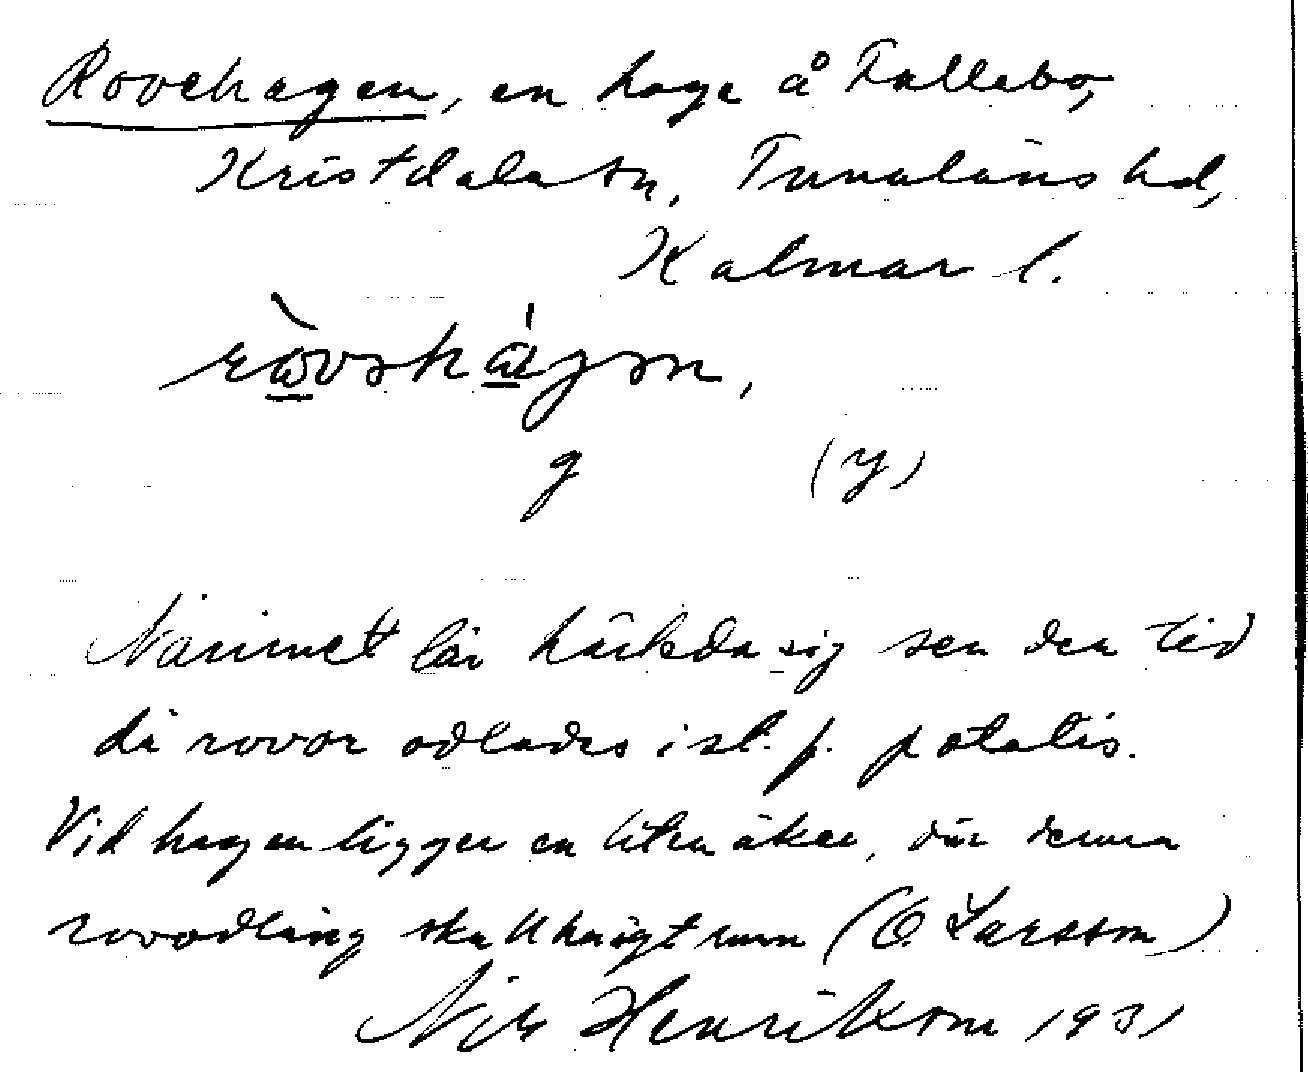 Rovehagen, en hage å Fallebo,
Kristdala sn, Tunaläns hd,
Kalmar l.
g (y)
Namnet lär härleda sig sen den tid
då rovor odlades i st. f. potatis.
Vid hagen ligger en liten åker, där denna
rovodling skall ha ägt rum (O. Larsson)
Nils Henrikson 1931